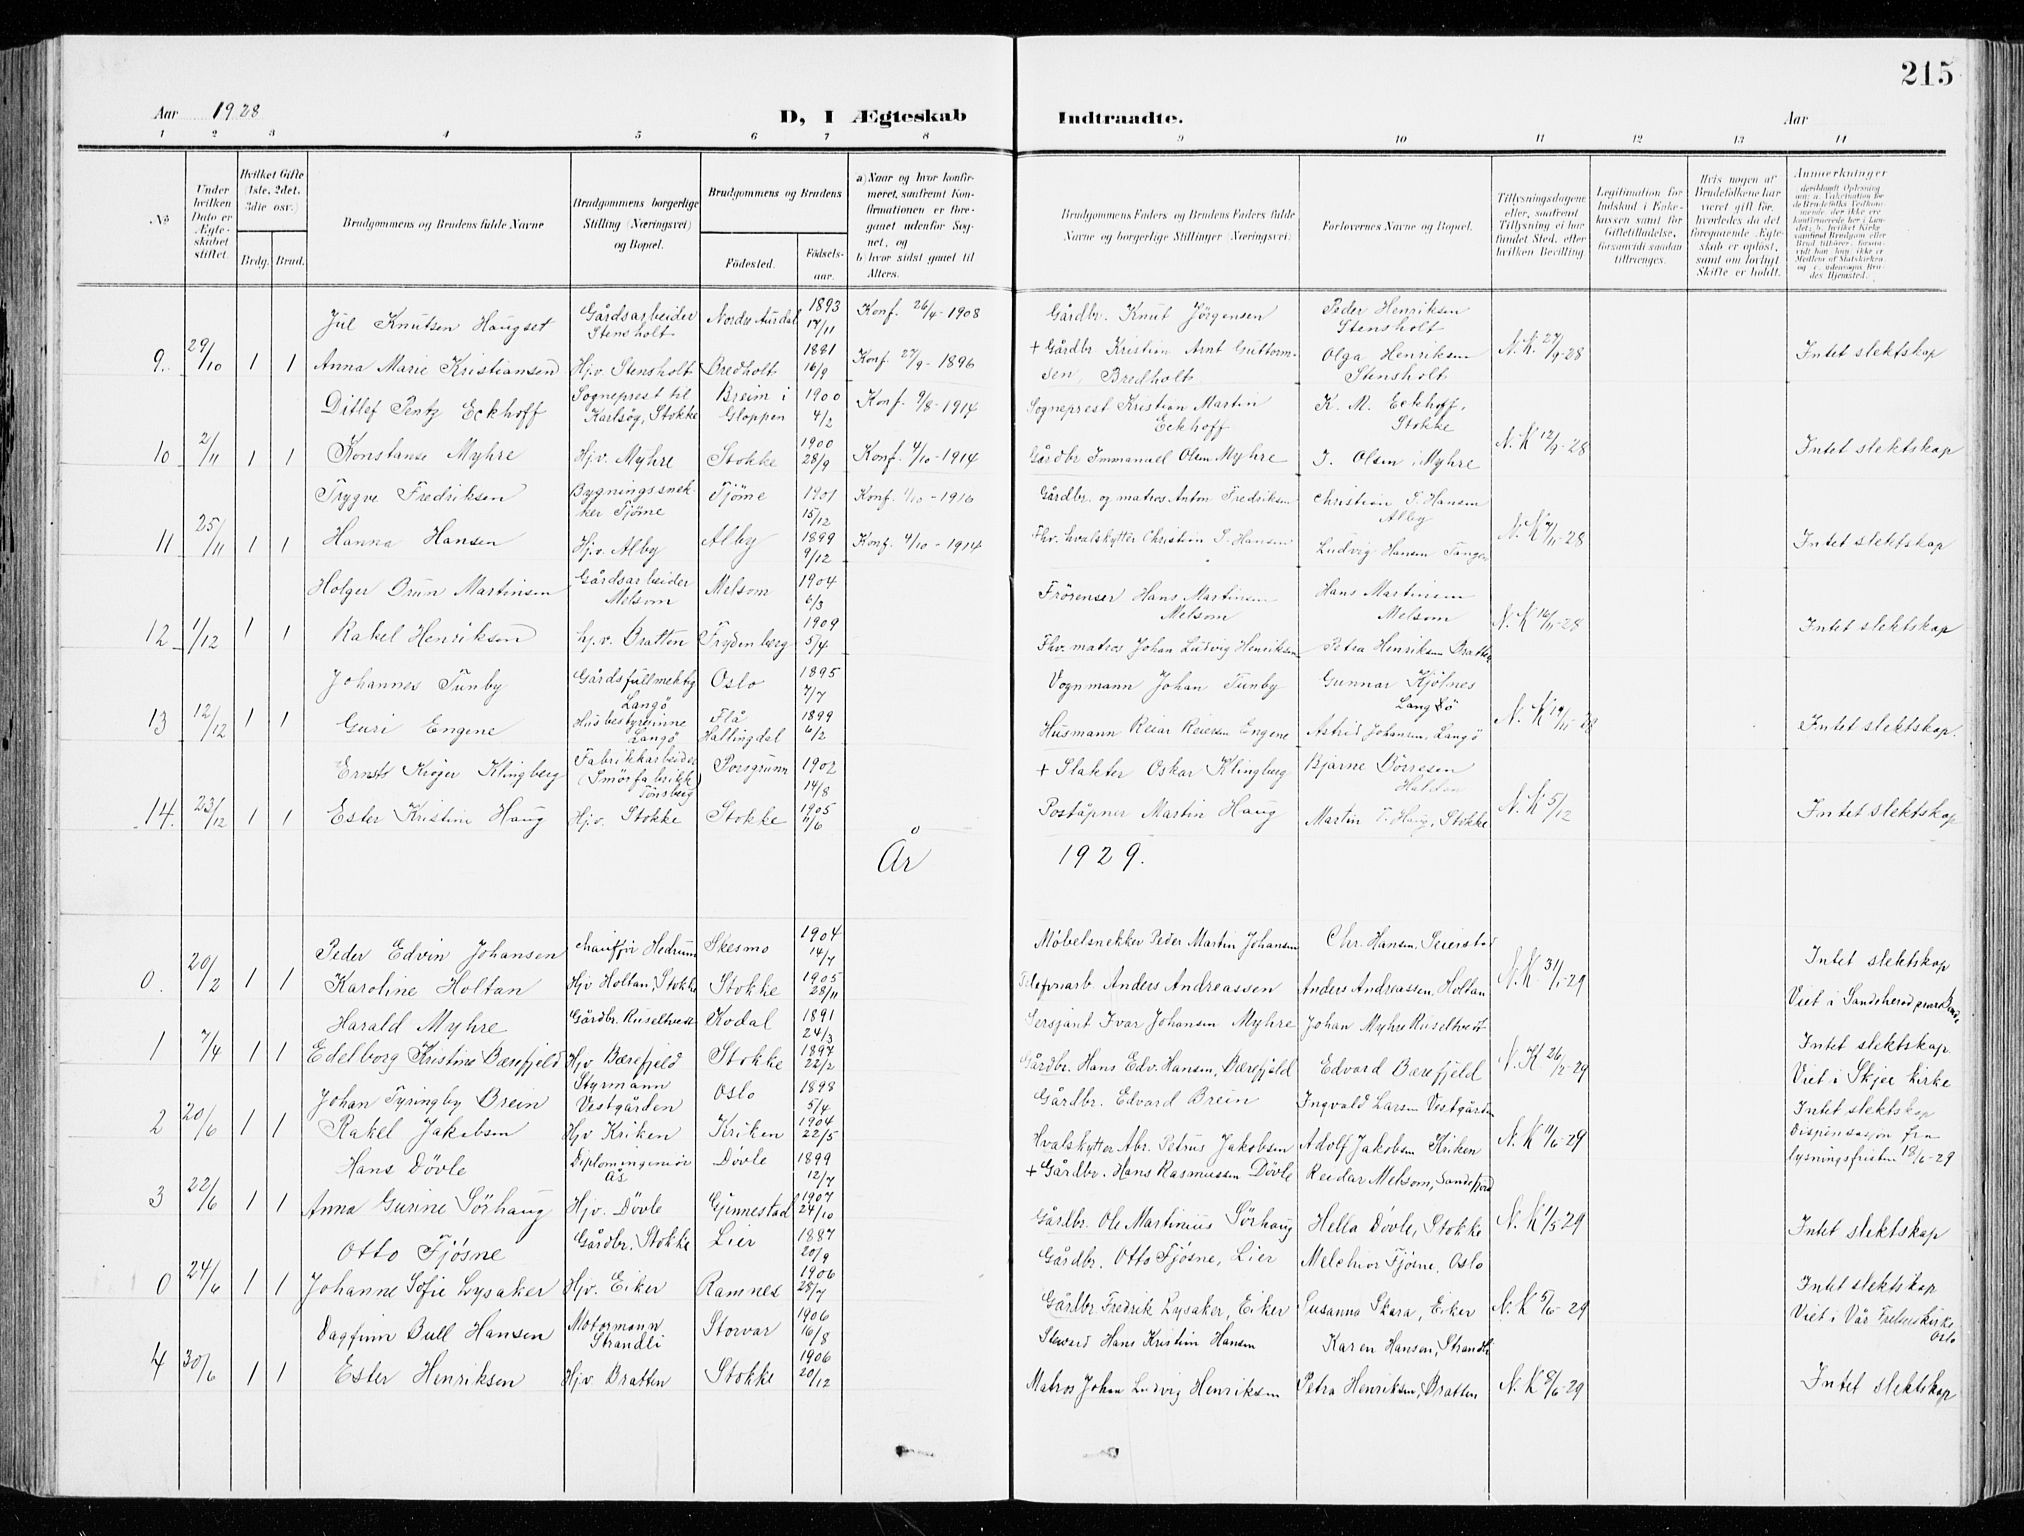 215
Aar 1928
D, I Ægteskab Indtraadte.
Aar
1 2 3 4 5 6 7 8 9 10 11 12 13 14
No
Under hvilken Dato er Ægteskabet stiftet.
Hvilket Gifte (1ste, 2det, 3die osv.)
Brdg. Brud.
Brudgommens og Brudens fulde Navne
Brudgommens borgerlige Stilling (Næringsvei) og Bopæl.
Brudgommens og Brudens
Födested. Födselsaar.
a) Naar og hvor konfirmeret, saafremt Konfirmationen er foregaaet udenfor Sognet, og
b) hvor sidst gaaet til Alters.
Brudgommens Faders og Brudens Faders fulde Navne og borgerlige Stillinger (Næringsvei)
Forlovernes Navne og Bopæl.
Tillysningsdagene, eller, saafremt Tillysning ei har fundet Sted, efter hvilken Bevilling
Legitimation for Indskud i Enkekassen samt for Giftetilladelse, forsaavidt saadan tiltrænges.
Hvis nogen af Brudefolkene har været gift før, hvorledes da det foregaaende Ægteskab er opløst, samt om lovligt Skifte er holdt.
Anmerkninger
Jul Knutsen Haugset Gårdsarbeider Stensholt Nordre Aurdal 1893 17/11 Konf. 26/4-1908 Gårdbr. Knut Jörgensen Peder Henriksen Stensholt
9. 29/10 1 1 Anna Marie Kristiansen Hjv. Stensholt Bredholt 1881 16/9 Konf. 27/9-1896 + Gårdbr Kristian Arnt Guttormsen, Bredholt Olga Henriksen Stensholt N.K. 27/9-28 Intet slektskap
Ditlef Pentz Eckhoff Sogneprest til Karlsöy, Stokke Breim i Gloppen 1900 4/2 Konf. 9/8-1914 Sogneprest Kristian Martin Eckhoff K. M. Eckhoff, Stokke
10 2/11 1 1 Konstanse Myhre Hjv. Myhre Stokke 1900 28/9 Konf. 4/10-1914 Gårdbr Immanuel Olsen Myhre J. Olsen, Myhre N.K 12/9-28 Intet slektskap
Trygve Fredriksen Bygningssnekker Tjöme Tjöme 1901 15/12 Konf. 1/10-1916 Gårdbr. og matros Anton Fredriksen Christian S. Hansen Alby
11 25/11 1 1 Hanna Hansen Hjv. Alby Alby 1899 9/12 Konf. 4/10-1914 Fhv. hvalskytter Christian S. Hansen Ludvig Hansen Tangen N.K 7/11-28 Intet slektskap
Holger Brun Martinsen Gårdsarbeider Melsom Melsom 1904 6/3 Hans Martinsen Melsom Hans Martinsen Melsom
12 1/12 1 1 Rakel Henriksen hj.v. Bratten Frydenberg 1909 5/4 Fhv. matros Johan Ludvig Henriksen Petra Henriksen Bratten N.K 16/11-28 Intet slektskap
Johannes Tunby Gårdsfullmektig Langö Oslo 1895 7/7 Vognmann Johan Tunby Gunnar Kjölnes Lang Ö
13 12/12 1 1 Guri Engene Husbestyrerinne Langö Flå Hallingdal 1899 6/2 Husmann Reiar Reiersen Engene Astrid Johansen, Langö N.K 14/11-28 Intet slektskap.
Ernst Kröger Klingberg Fabrikkarbeider (Smörfabrikk) Tönsberg Porsgrunn 1902 14/8 + Slakter Oskar Klingberg Bjarne Börresen
14. 23/12 1 1 Ester Kristine Haug Hjv. Stokke Stokke 1905 /6 Poståpner Martin Haug Martin T. Haug, Stokke N.K 5/12 Intet slektskap
År 1929.
Peder Edvin Johansen chaufför Hedrum Skesmo 1904 14/7 Möbelsnekker Peder Martin Johansen Chr. Hansen, Seierstad
0. 20/2 1 1 Karoline Holtan Hjv Holtan, Stokke Stokke 1905 28/11 Telefonarb. Anders Andreassen Anders Andreassen, Holtan N.K 31/1-29 Intet slektskap Viet i Sandeherad
Harald Myhre Gårdbr. Ruseltvedt Kodal 1891 24/3 Sersjant Ivar Johansen Myhre Johan Myhre Ruseltvedt
1 7/4 1 1 Edelborg Kristine Bærefjeld Hjv Bærefjeld Stokke 1897 22/2 Gårdbr. Hans Edv. Hansen, Bærefjeld Edvard Bærefjeld N.K 26/2-29 Intet slektskap. Viet i Skjee kirke
Johan Tyringby Brein Styrmann Vestgården Oslo 1898 5/4 Gårdbr. Edvard Brein Ingvald Larsen Vestgården
2 20/6 1 1 Rakel Jakobsen Hjv Kriken Kriken 1904 22/5 Hvalskytter Abr. Petrus Jakobsen Adolf Jakobsen Kriken N.K 11/6-29 Intet slektskap Dispensasjon fra lysningsfristen 18/6-29
Hans Dövle Diplomingeniör Ås Dövle 1899 12/7 + Gårdbr. Hans Rasmussen Dövle Reidar Melsom, Sandefjord
3 22/6 1 1 Anna Gurine Sörhaug Hjv. Dövle Gjennestad 1907 24/10 Gårdbr. Ole Martinius Sörhaug Hella Dövle, Stokke N.K 1/5 29 Intet slektskap
Otto Fjösne Gårdbr. Stokke Lier 1887 20/9 Gårdbr. Otto Fjösne, Lier Melchior Fjösne, Oslo
0 24/6 1 1 Johanne Sofie Lysaker Hjv. Eiker Ramnes 1906 28/7 Gårdbr. Fredrik Lysaker, Eiker Susanna Skara, Eiker N.K 5/6-29 Intet slektskap Viet i Vår Frelsers kirke Oslo
Dagfinn Bull Hansen Motormann Strandli Storvar 1906 16/8 Steward Hans Kristian Hansen Karen Hansen, Strandli
4 30/6 1 1 Ester Henriksen Hjv Bratten Stokke 1906 20/12 Matros Johan Ludvig Henriksen Petra Henriksen, Bratten N.K 8/6-29 Intet slektskap